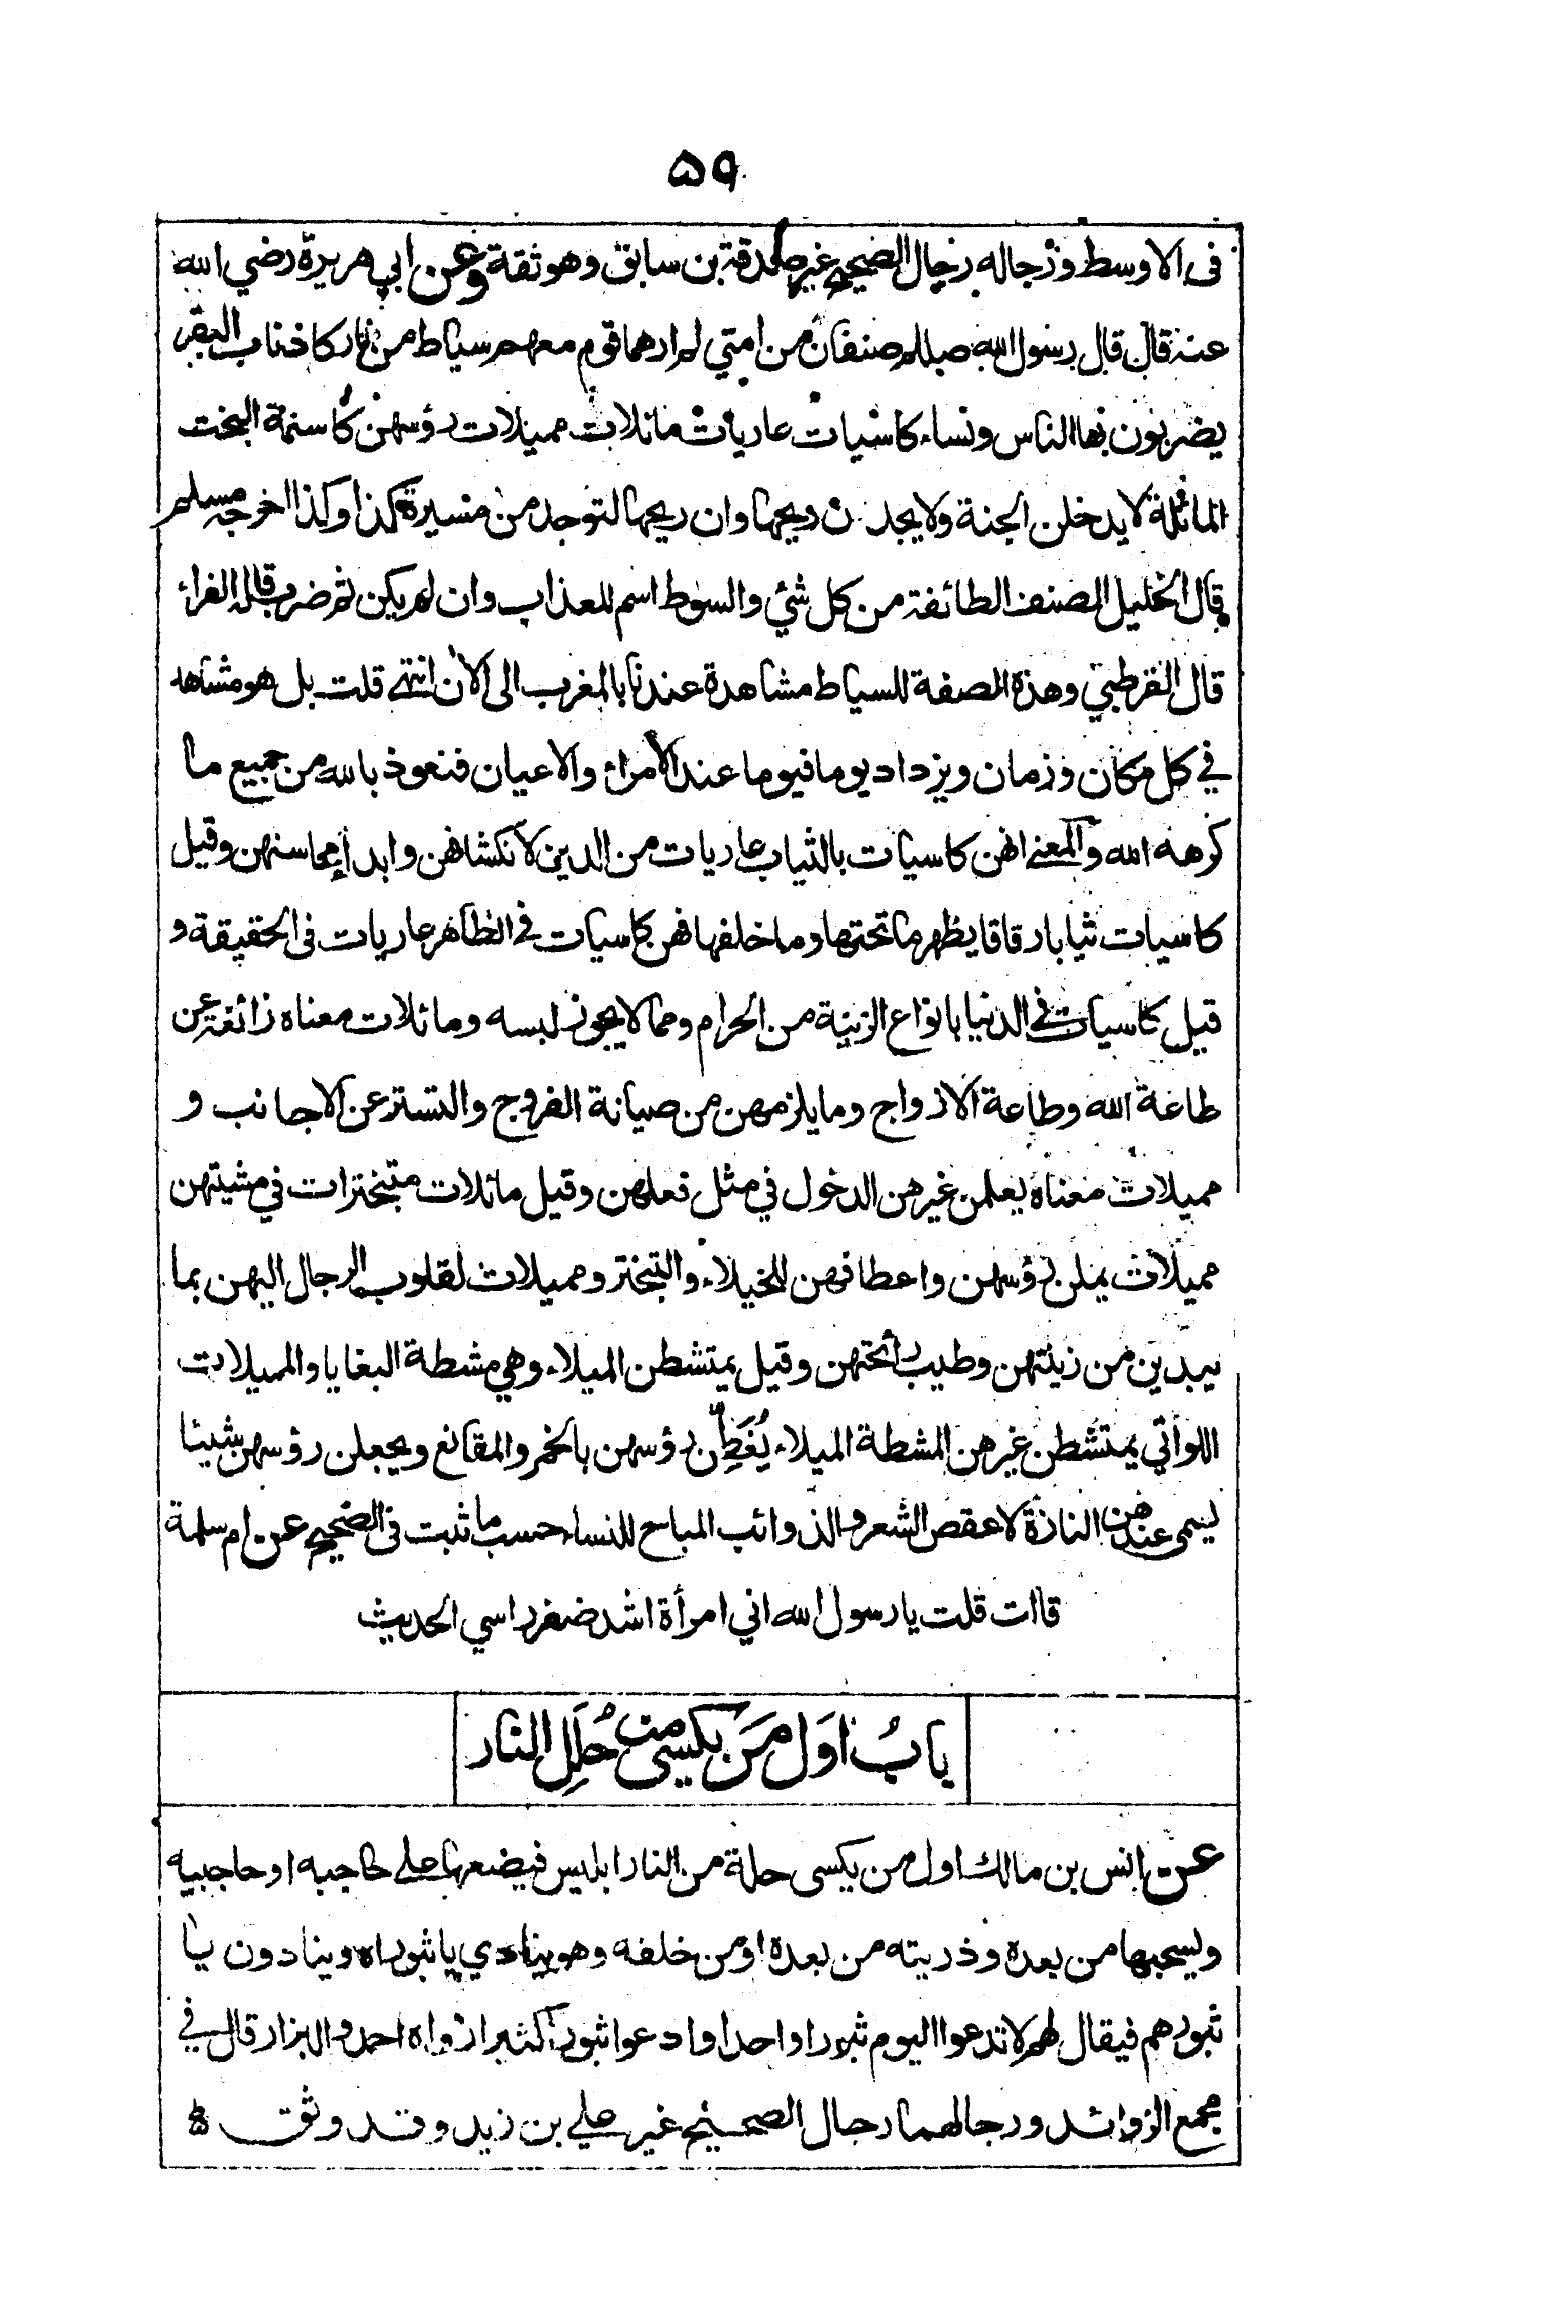 ۵۹
فى الاوسط ورجاله رجال الصحيح غير صدقة بن سابق وهو ثقة وعن ابي هريرة رضي الله
عنه قال قال رسول الله صللم صنفان من امتي لم ارهما قوم معهم سياط من نار كاذناب البقر
يضربون بها الناس ونساء كاسيات عاريات مائلات مميلات رؤسهن كأسنمة البخت
المائلة لا يدخلن الجنة ولا يجدن ريحها وان ريحها لتوجد من مسيرة كذا وكذا اخرجه مسلم
قال الخليل الصنف الطائفة من كل شئ والسوط اسم للعذاب وان لم يكن ثم ضرب قاله الفراء
قال القرطبي وهذه الصفة للسياط مشاهدة عندنا بالمغرب الى الآن انتهى قلت بل هو مشاهد
في كل مكان وزمان ويزداد يوما فيوما عند الأمراء والاعيان فنعوذ بالله من جميع ما
كرهه الله والمعنى انهن كاسيات بالثياب عاريات من الدين لانكشافهن وابداء محاسنهن وقيل
كاسيات ثيابا رقاقا يظهر ما تحتها وما خلفها فهن كاسيات في الظاهر عاريات فى الحقيقة و
قيل كاسيات في الدنيا بانواع الزينة من الحرام ومما لا يجوز لبسه ومائلات معناه زائغة عن
طاعة الله وطاعة الازواج وما يلزمهن من صيانة الفروج والتستر عن الاجانب و
مميلات معناه يعلمن غيرهن الدخول في مثل فعلهن وقيل مائلات متبخترات في مشيتهن
مميلات يملن رؤسهن واعطافهن للخيلاء والتبختر ومميلات لقلوب الرجال اليهن بما
يبدين من زينتهن وطيب رائحتهن وقيل يمتشطن الميلاء وهي مشطة البغايا والمميلات
اللواتي يمتشطن غيرهن المشطة الميلاء يُغَطِّن رؤسهن بالخمر والمقانع ويجعلن رؤسهن شيئا
يسمى عندهن النازة لا عقص الشعر والذوائب المباح للنساء حسب ما ثبت فى الصحيح عن ام سلمة
قالت قلت يا رسول الله اني امرأة اشد ضفر راسي الحديث
بابُ اوَل مَن يكسى من حُلَلِ النار
عن انس بن مالك اول من يكسى حلة من النار ابليس فيضعها على حاجبه او حاجبيه
ويسحبها من بعده وذريته من بعده او من خلفه وهو ينادي يا ثبوراه وينادون يا
ثبورهم فيقال لهم لا تدعوا اليوم ثبورا واحدا وادعوا ثبورا كثيرا رواه احمد والبزار قال في
مجمع الزوائد ورجالهما رجال الصحيح غير علي بن زيد وقد وثق